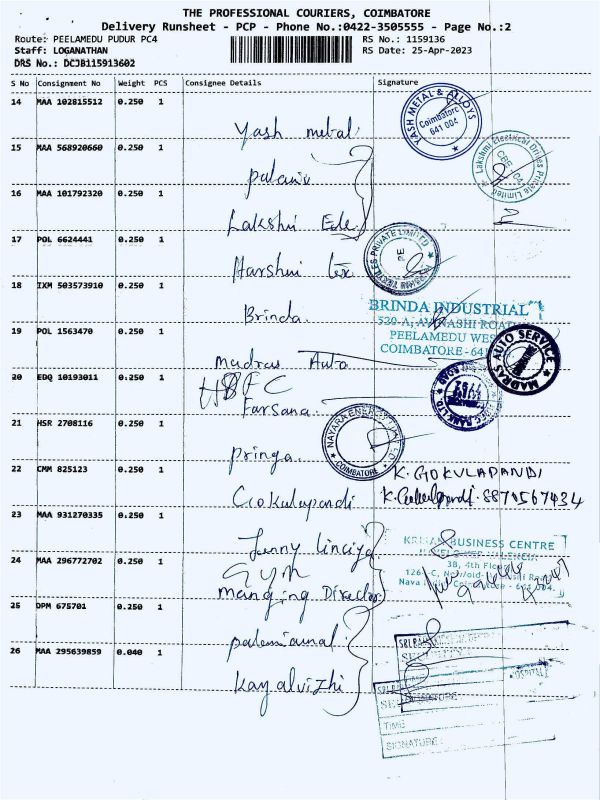 THE PROFESSIONAL COURIERS, COIMBATORE
Delivery Runsheet - PCP - Phone No.:0422-3505555 - Page No.:2
Route: PEELAMEDU PUDUR PC4 RS No.: 1159136
Staff: LOGANATHAN RS Date: 25-Apr-2023
DRS No.: DCJB115913602
S No Consignment No Weight PCS Consignee Details Signature
14 MAA 102815512 0.250 1
Yash metal
YASH METAL & ALLOYS
Coimbatore
641 004
15 MAA 568920660 0.250 1
Lakshmi Electrical Drives Private Limited
CBE
16 MAA 101792320 0.250 1
Lakshmi
17 POL 6624441 0.250 1
Harshni Tex
TEXTILES PRIVATE LIMITED
18 IXM 503573910 0.250 1
Brinda
BRINDA INDUSTRIAL
520-A, AVINASHI ROAD
PEELAMEDU WES
COIMBATORE - 641
19 POL 1563470 0.250 1
Madras Auto
MADRAS AUTO SERVICE
20 EDQ 10193011 0.250 1
HDFC
Farsana
BANK LTD.
ROAD
21 HSR 2708116 0.250 1
Priнga
NAYARA ENERGY
COIMBATORE
22 CMM 825123 0.250 1
Gokulapandi
K. GOKULAPANDI
23 MAA 931270335 0.250 1
Jenny
BUSINESS CENTRE
3B, 4th Floo
24 MAA 296772702 0.250 1
Gym
Manging Director
25 DPM 675701 0.250 1
26 MAA 295639859 0.040 1
Kayalvizhi
TIME
SIGNATURE